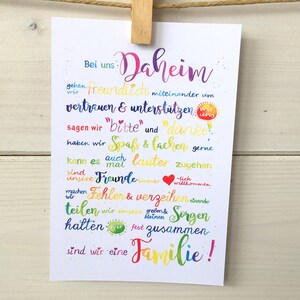 Bei uns Daheim
gehen wir freundlich miteinander um
vertrauen & unterstützen uns
sagen wir "bitte" und "danke"
haben wir Spaß & lachen gerne
kann es auch mal lauter zugehen
sind unsere Freunde immer -lich willkommen
machen wir Fehler & verzeihen einander
teilen wir unsere großen & kleinen Sorgen
halten fest zusammen
sind wir eine Familie!